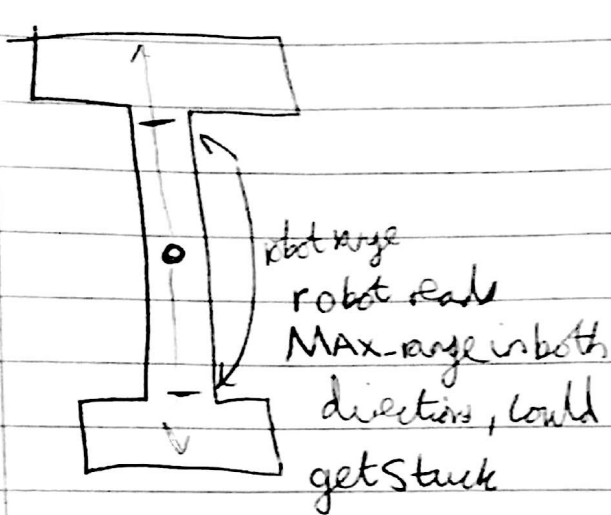 robot range
robot reads
MAX-range in both
directions, could
get Stuck